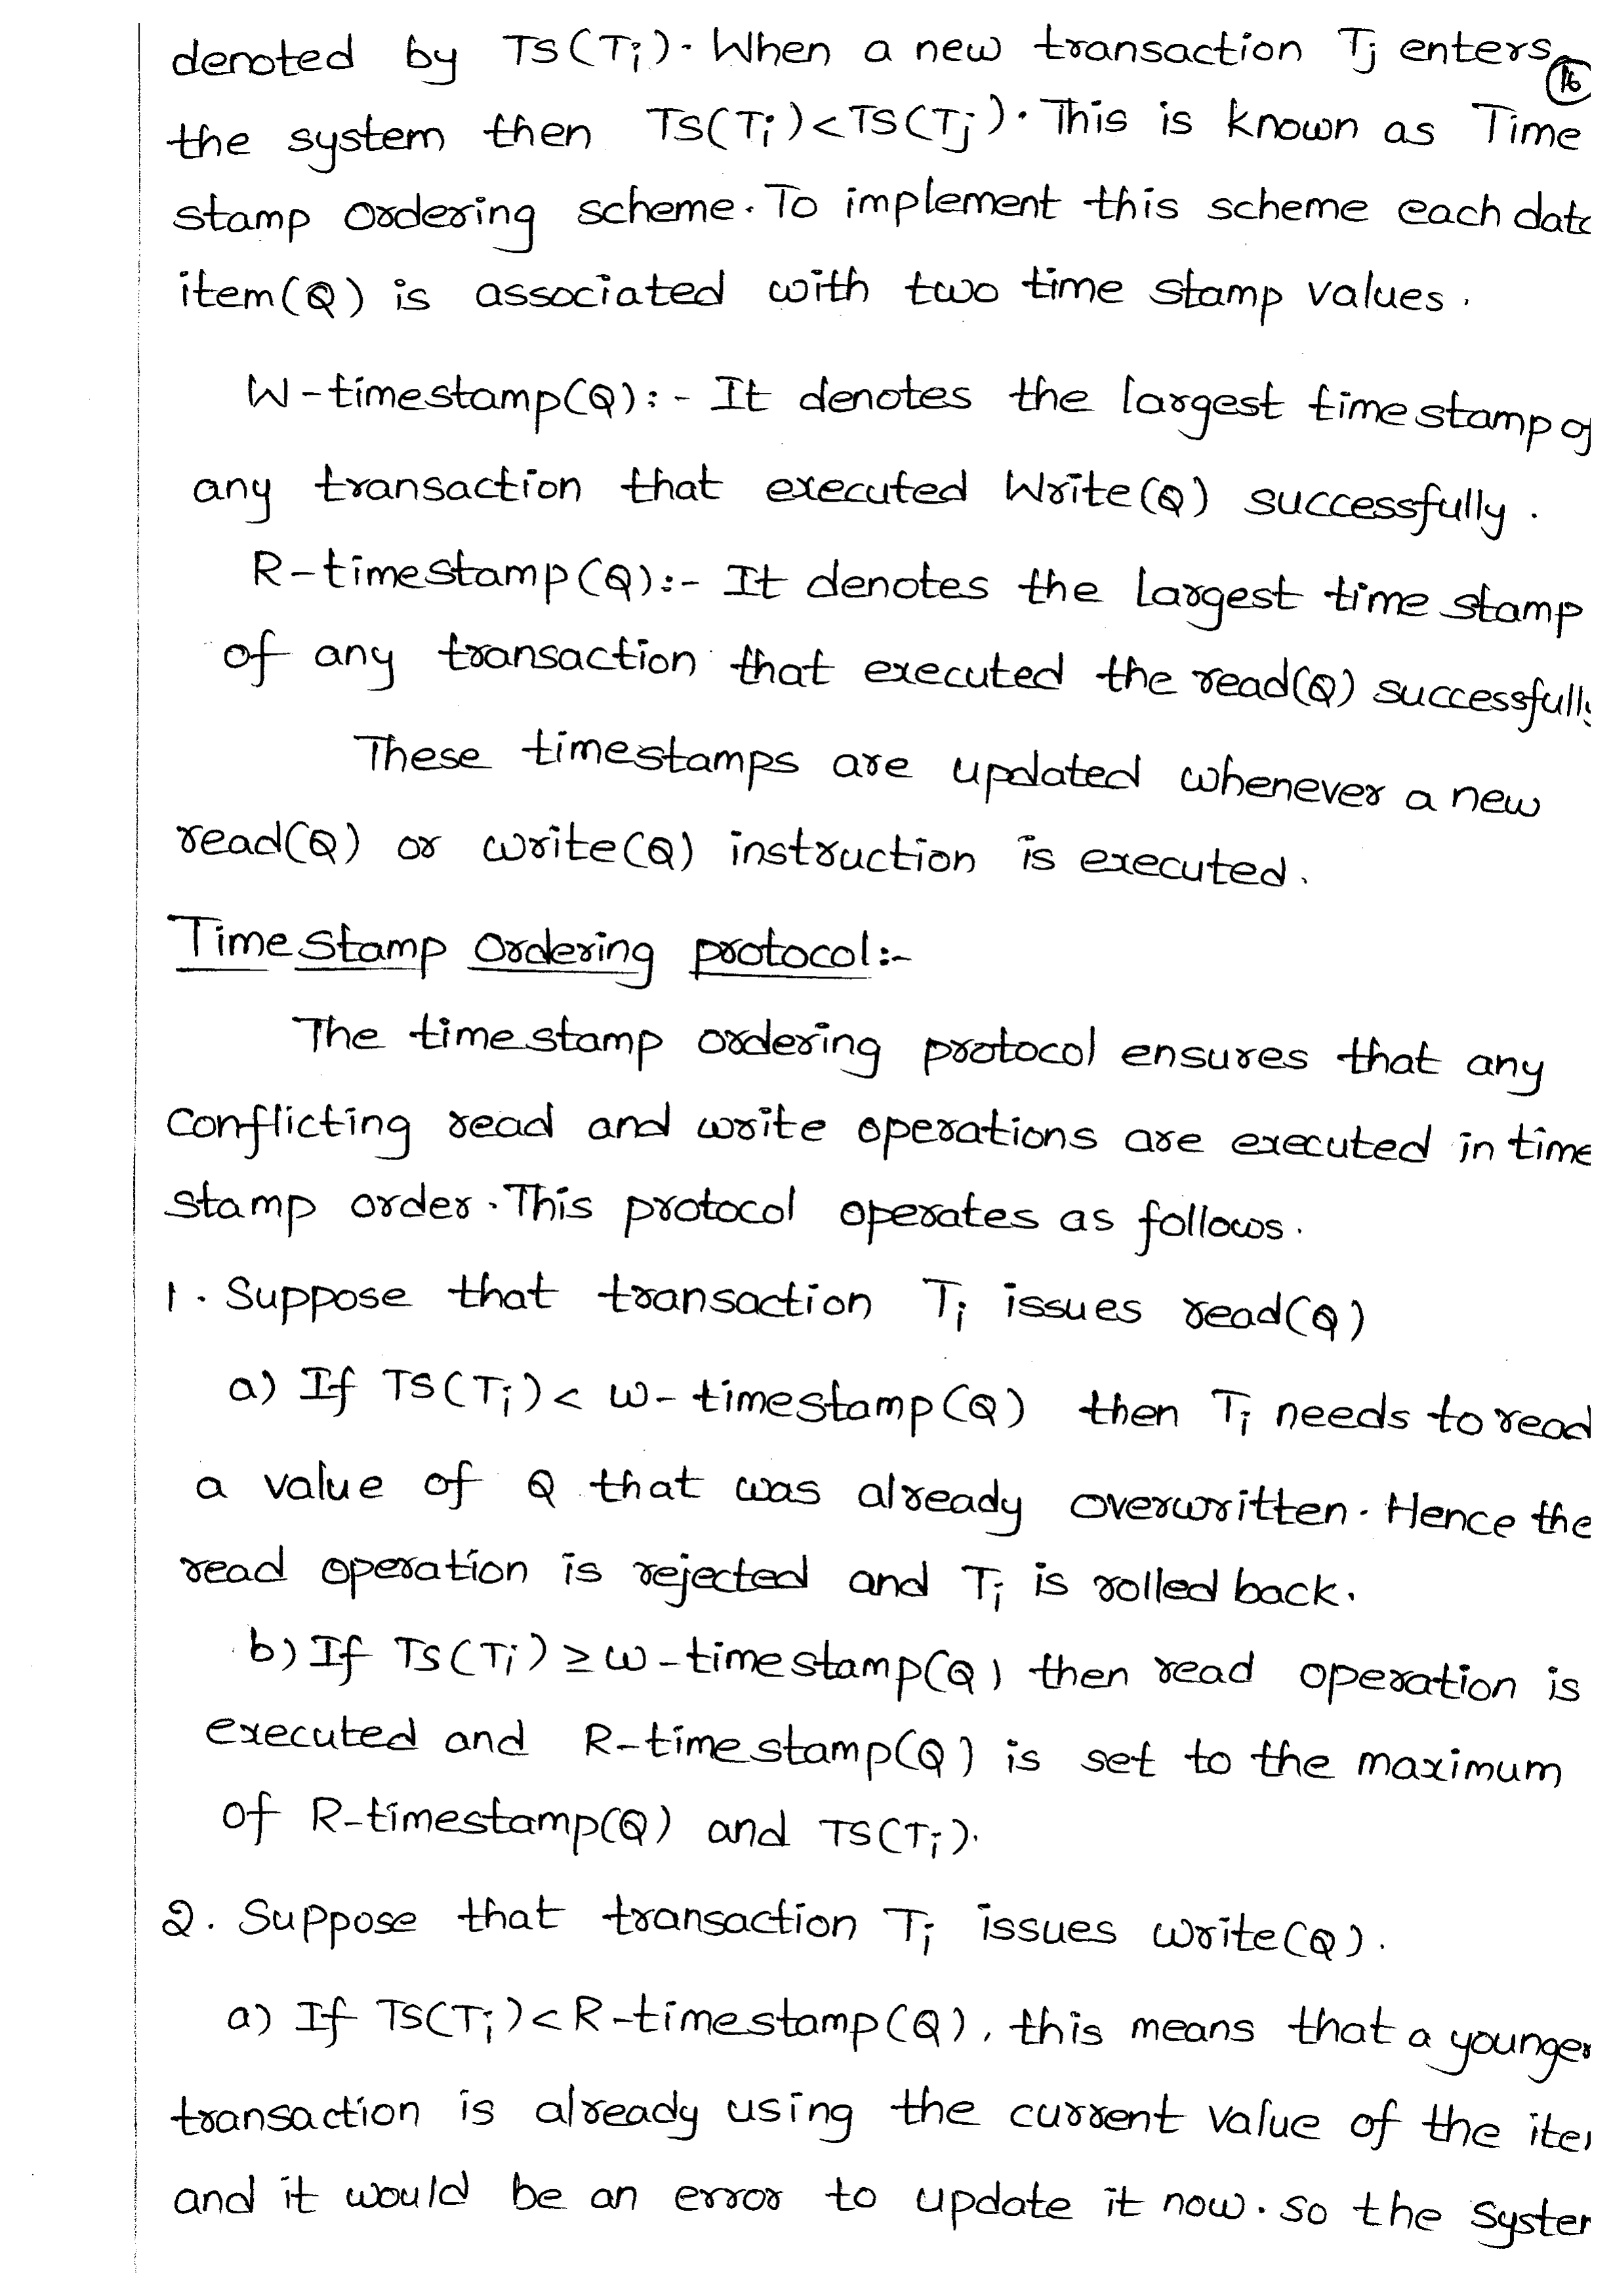 denoted by TS(Ti). When a new transaction Tj enters
16
the system then TS(Ti)<TS(Tj). This is known as Time
stamp ordering scheme. To implement this scheme each data
item(Q) is associated with two time stamp values.
W-timestamp(Q):- It denotes the largest timestamp of
any transaction that executed Write(Q) successfully.
R-timestamp(Q):- It denotes the largest time stamp
of any transaction that executed the read(Q) successfully
These timestamps are updated whenever a new
read(Q) or write(Q) instruction is executed.
Time Stamp Ordering protocol:-
The timestamp ordering protocol ensures that any
Conflicting read and write operations are executed in time
stamp order. This protocol operates as follows.
1. Suppose that transaction Ti issues read(Q)
a) If TS(Ti) < W-timestamp(Q) then Ti needs to read
a value of Q that was already overwritten. Hence the
read operation is rejected and Ti is rolled back.
b) If TS(Ti) ≥ W-timestamp(Q) then read operation is
executed and R-timestamp(Q) is set to the maximum
of R-timestamp(Q) and TS(Ti).
2. Suppose that transaction Ti issues write(Q).
a) If TS(Ti)<R-timestamp(Q), this means that a younger
transaction is already using the current value of the ite
and it would be an error to update it now. So the Syste